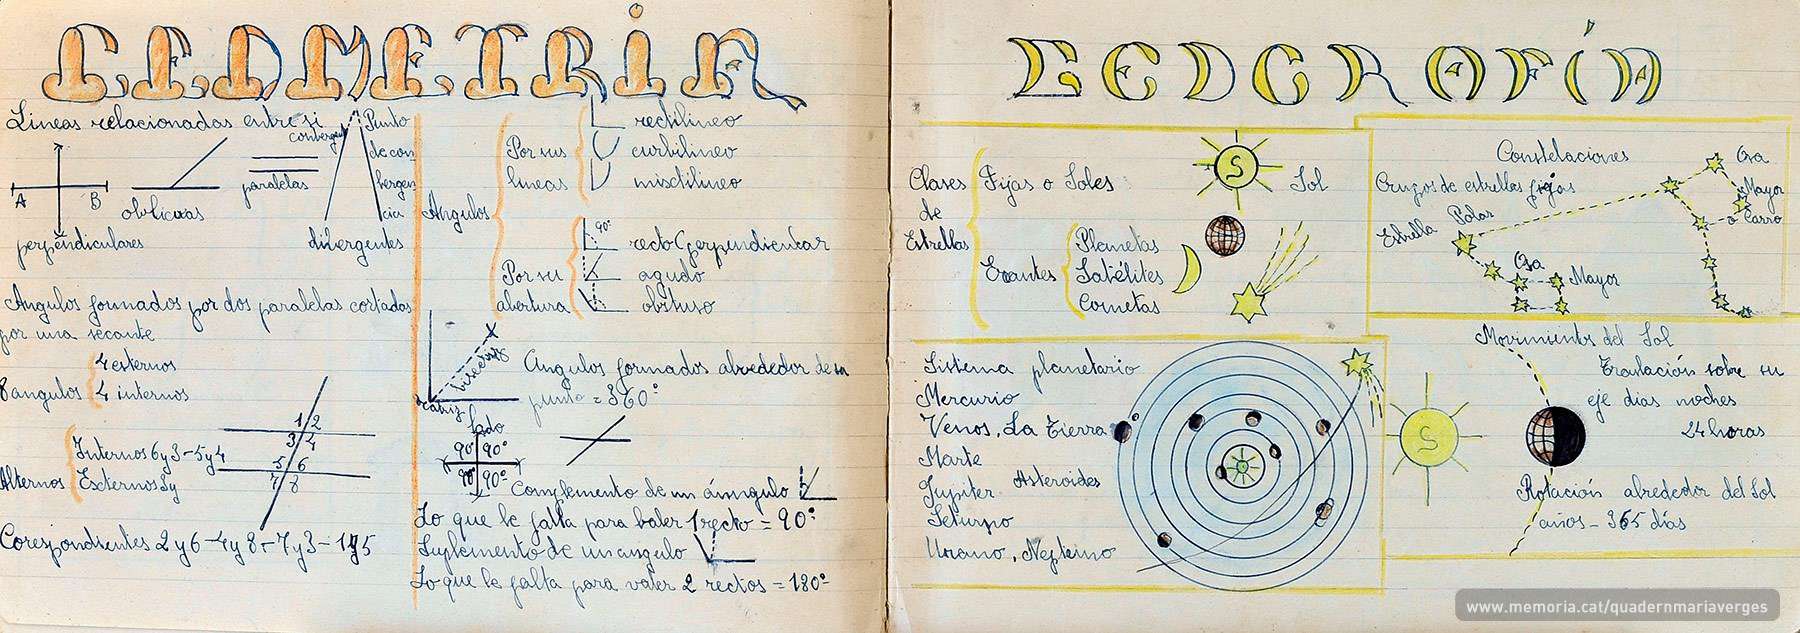 GEOMETRIA
Lineas relacionadas entre si
convergen
Punto
de con
bergen
cia
A B
perpendiculares
oblicuas
paralelas
divergentes
Angulos formados por dos paralelas cortadas
por una secante
8 angulos
4 esternos
4 internos
Alternos
Internos 6y3-5y4
Esternos
1 2
3 4
5 6
7 8
2y6-4y8-7y3-1y5
Angulos
Por sus
lineas
rectilineo
curbilineo
mistilineo
Por su
abertura
90°
recto (perpendicular
agudo
obtuso
bisectris
lado
Angulos formados alrededor de un
punto = 360°
90° 90°
90° 90°
Complemento de un ángulo
Lo que le falta para baler 1 recto = 90°
Suplemento de un angulo
Lo que le falta para valer 2 rectos = 180°
GEOGRAFÍA
Clases
de
Estrellas
Fijas o Soles
S
Sol
Erantes
Planetas
Satélites
Cometas
Constelaciones
Grupos de estrellas fijas
Osa
Mayor
o Carro
Estrella Polar
Osa
Mayor
Sistema planetario
Mercurio
Venos, La Tierra
Marte
Asteroides
Jupiter
Seturno
Urano, Neptuno
Movimientos del Sol
S
Traslación sobre su
eje dias noches
24 horas
Rotación alrededor del Sol
años - 365 días
www.memoria.cat/quadernmariaverges